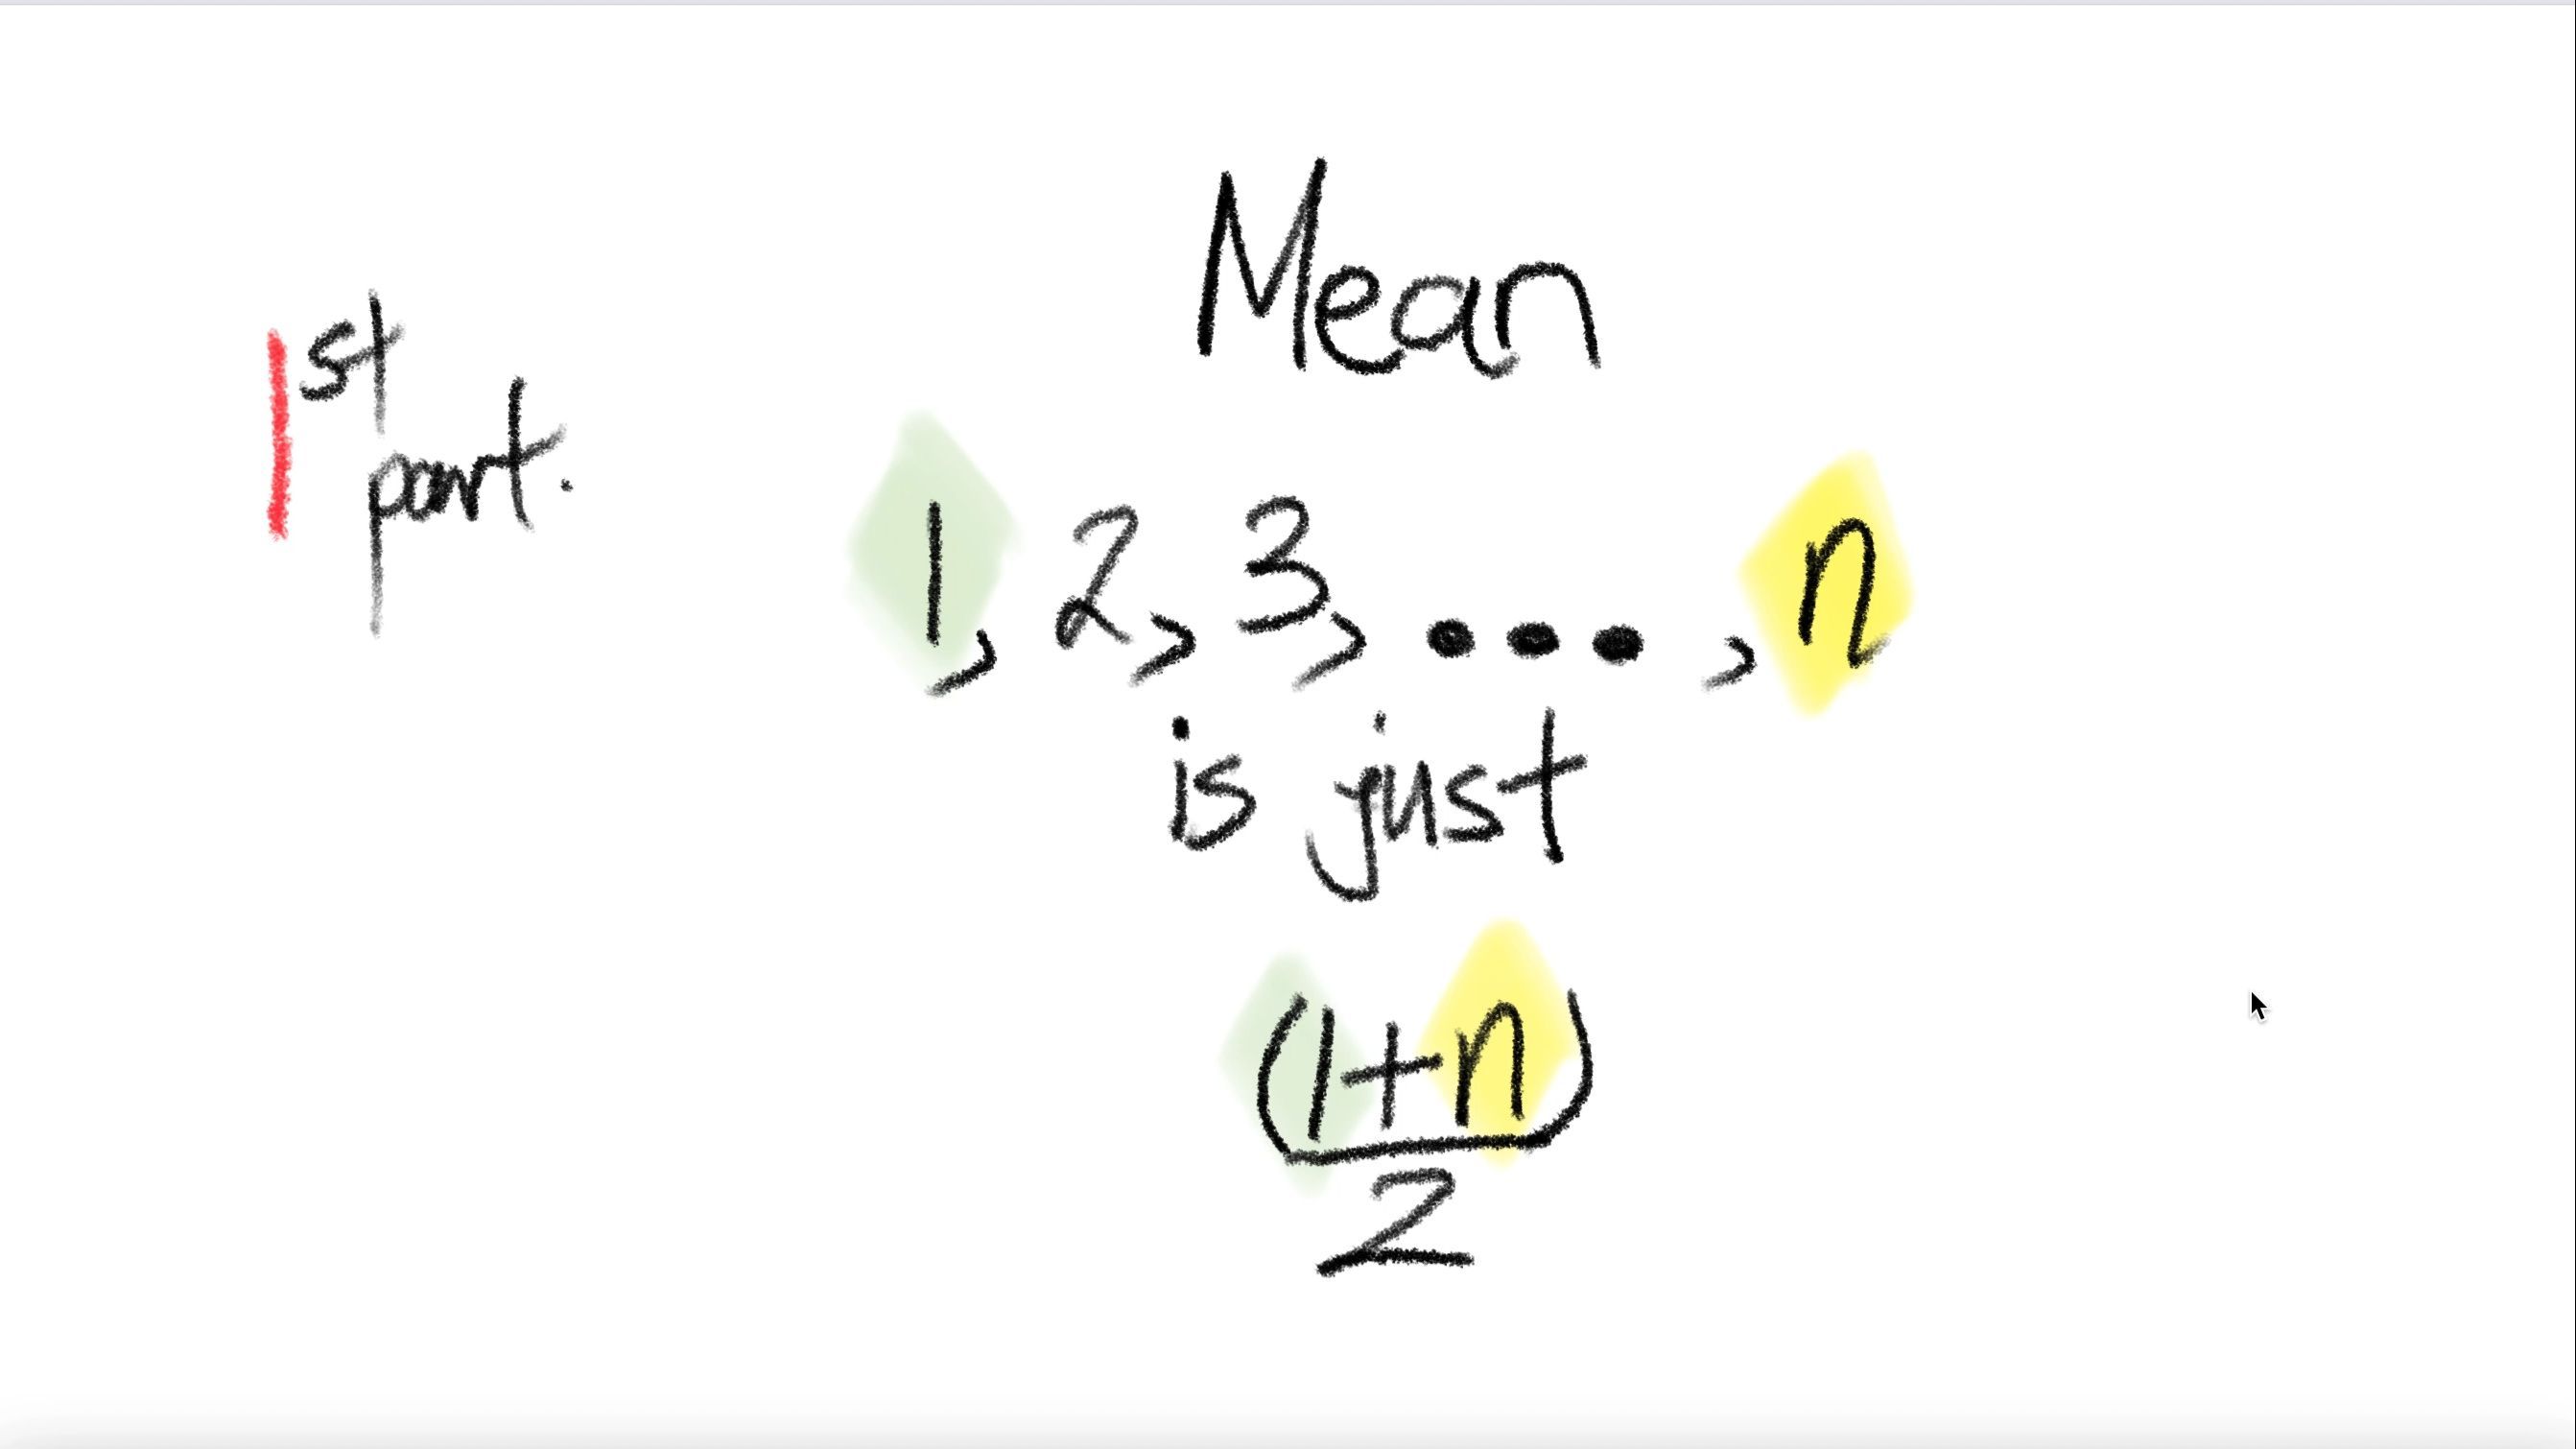 Mean
1st
part.
1, 2, 3, ... , n
is just
(1+n)
2